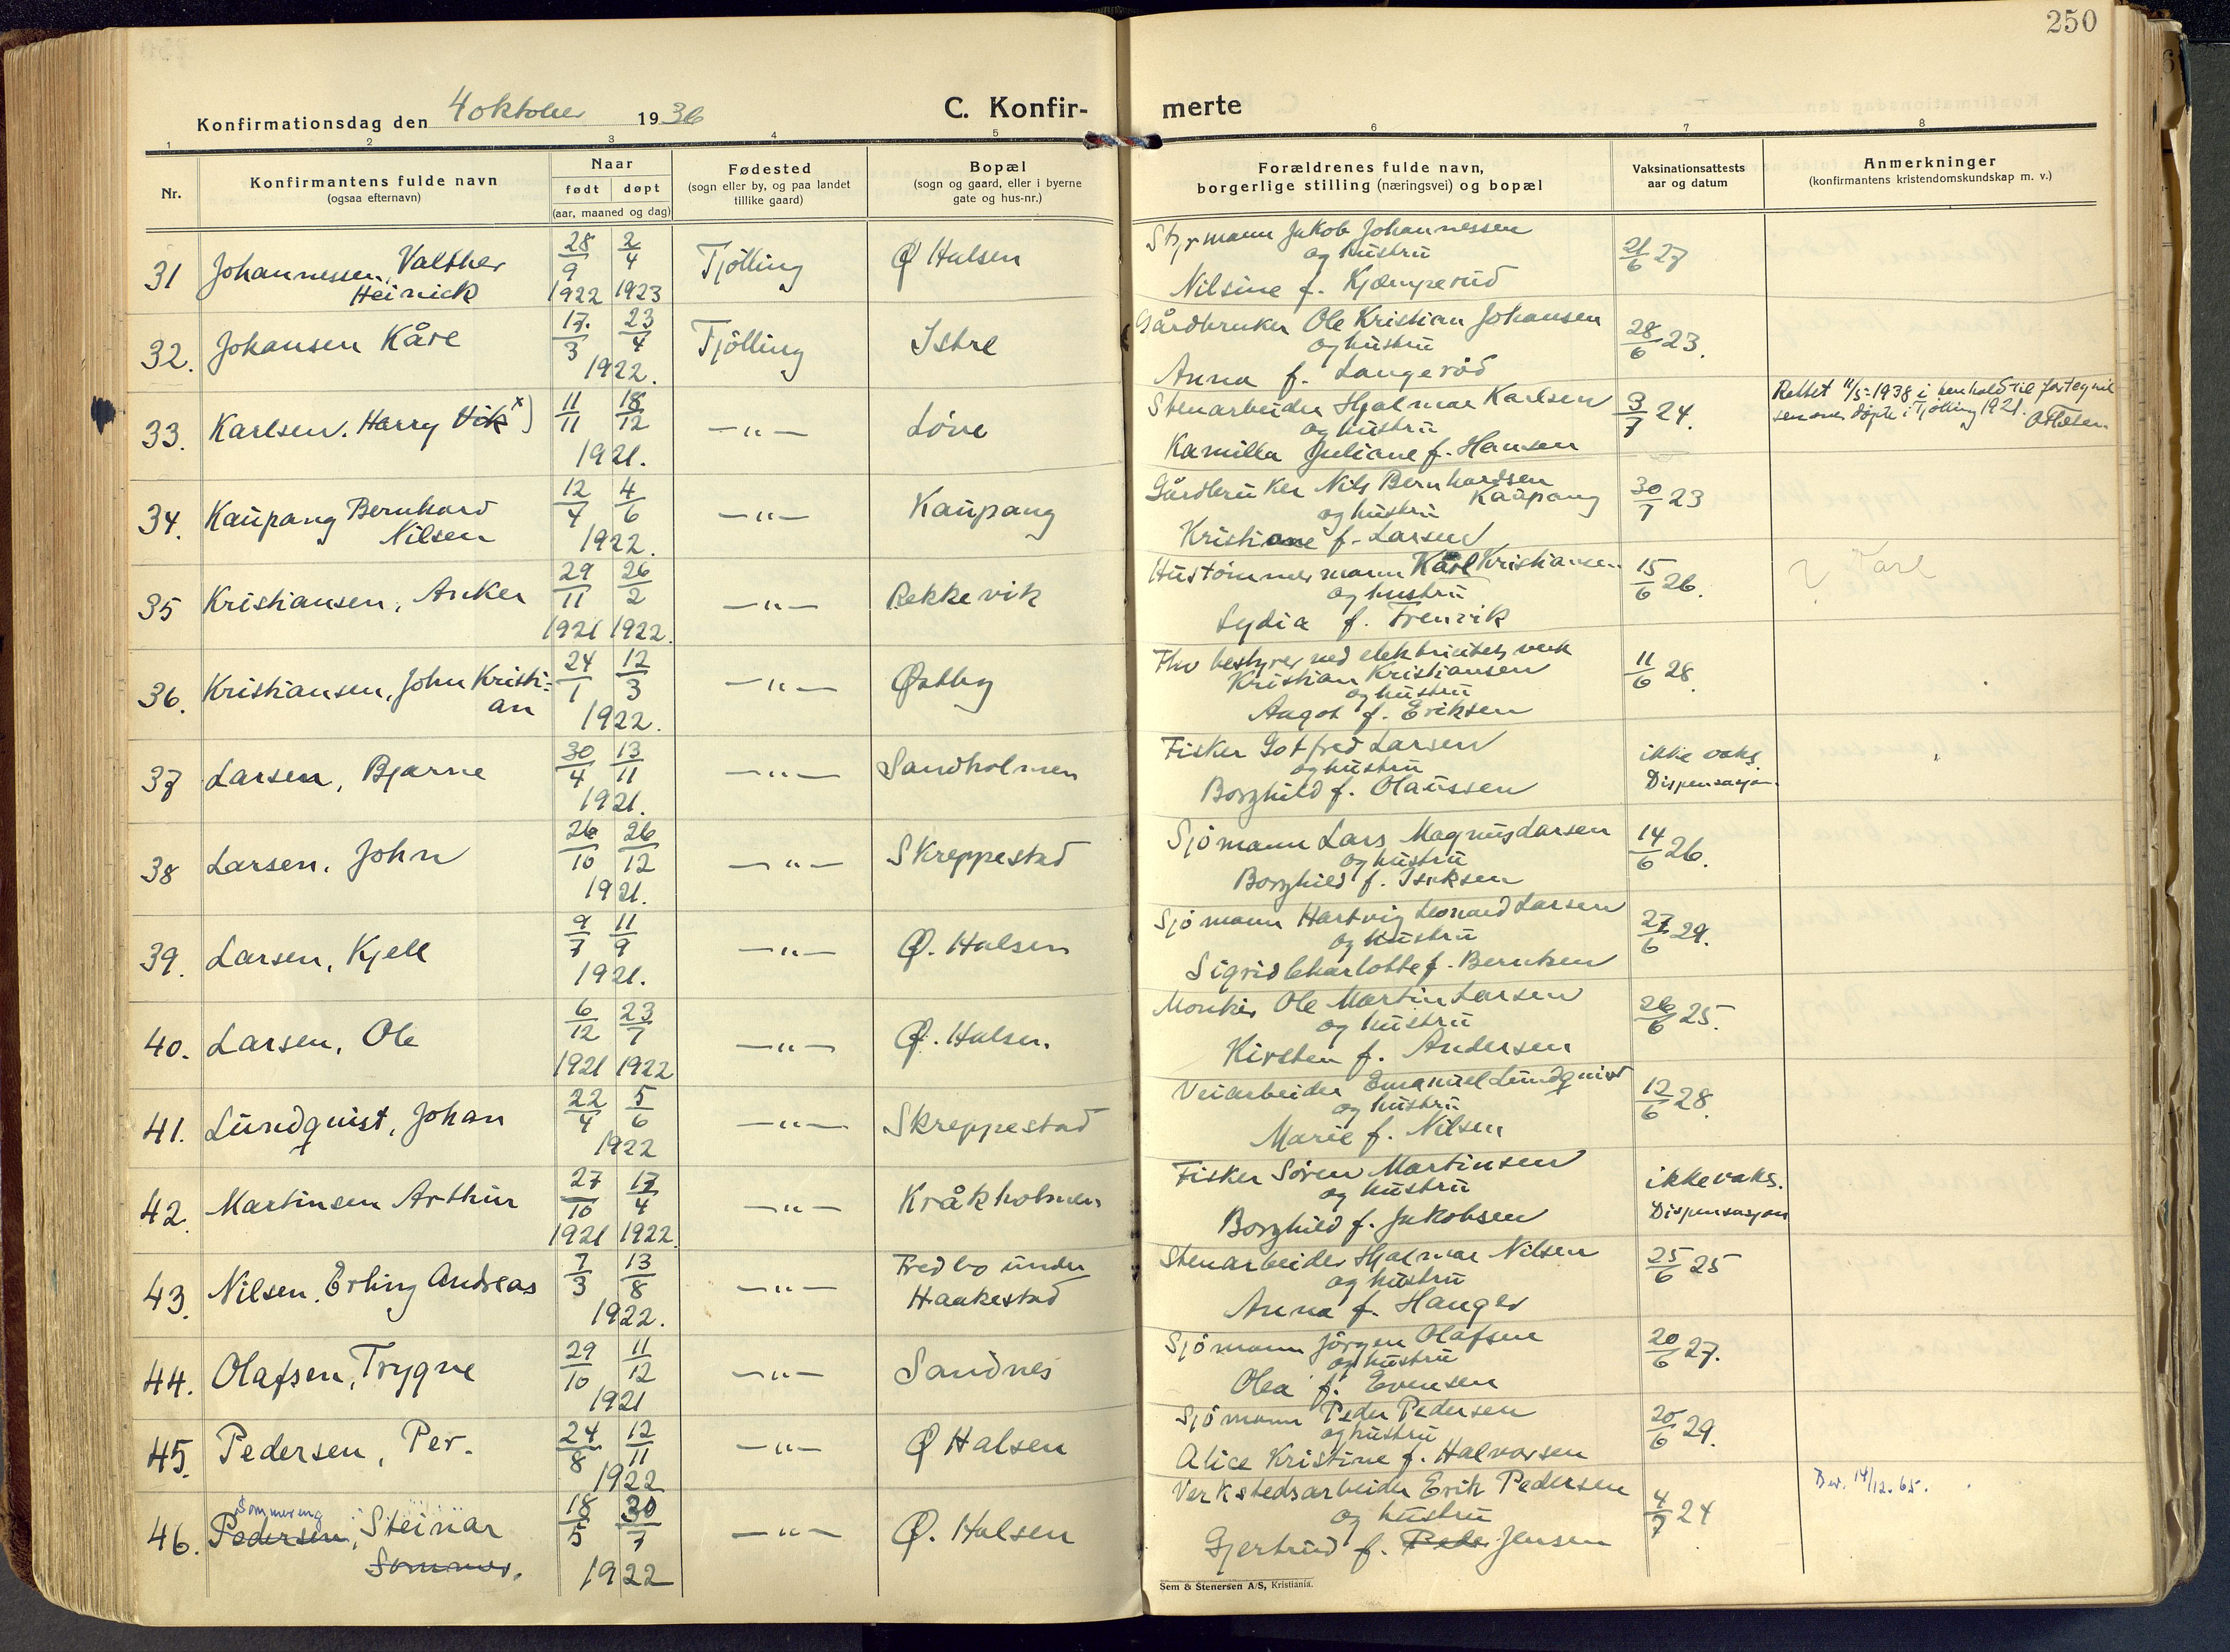 250
Konfirmationsdag den 4 oktober 1936
C. Konfir-
merte
1 2 3 4 5 6 7 8
Nr.
Konfirmantens fulde navn
(ogsaa efternavn)
Naar
født døpt
(aar, maaned og dag)
Fødested
(sogn eller by, og paa landet
tillike gaard)
Bopæl
(sogn og gaard, eller i byerne
gate og hus-nr.)
Forældrenes fulde navn,
borgerlige stilling (næringsvei) og bopæl
Vaksinationsattests
aar og datum
Anmerkninger
(konfirmantens kristendomskundskap m. v.)
31 Johannessen, Valther
Heinick
28/9 1922 2/4 1923
Tjölling
Ø Halsen
Styrmann Jakob Johannessen
og hustru
Nilsine f. Kjæmperud
21/6 27
32. Johansen Kåre
17/3 23/4
1922.
Tjölling
Istre
Gårdbruker Ole Kristian Johansen
og hustru
Anna f. Langeröd
28/6 23.
33. Karlsen. Harry Vik x)
11/11 18/12
1921.
—"—
Löve
Stenarbeider Hjalmar Karlsen
og hustru
Kamilla Juliane f. Hansen
3/7 24.
Rettet 11/5-1938 i henhold til fortegnel
sen over döpte i Tjölling 1921.
34. Kaupang Bernhard
Nilsen
12/4 4/6
1922.
—"—
Kaupang
Gårdbruker Nils Bernhardsen
Kaupang
og hustru
Kristiane f. Larsen
30/7 23
35 Kristiansen, Anker
29/11 1921 26/2 1922.
—"—
Rekkevik
Hustömmermann Karl Kristiansen
og hustru
Lydia f. Trenvik
15/6 26.
Karl
36. Kristiansen, John Kristi=
an
24/1 12/3
1922.
—"—
Østby
Fhv bestyrer ved elektricitetsverk
Kristian Kristiansen
og hustru
Aagot f. Eriksen
11/6 28.
37 Larsen, Bjarne
30/4 13/11
1921.
—"—
Sandholmen
Fisker Gotfred Larsen
og hustru
Borghild f. Olaussen
ikke vaks.
Dispensasjon.
38 Larsen, John
26/10 26/12
1921.
—"—
Skreppestad
Sjömann Lars Magnus Larsen
og hustru
Borghild f. Isaksen
14/6 26.
39. Larsen, Kjell
9/7 11/9
1921.
—"—
Ø. Halsen
Sjömann Hartvig Leonard Larsen
og hustru
Sigrid Charlotte f. Berntsen
27/6 29.
40. Larsen, Ole
6/12 1921 23/7 1922
—"—
Ø. Halsen.
Ole Martin Larsen
og hustru
Kirsten f. Andersen
26/6 25.
41. Lundquist, Johan
22/4 5/6
1922
—"—
Skreppestad
Veiarbeider Emanuel Lundquist
og hustru
Marie f. Nilsen
12/6 28.
42. Martinsen Arthur
27/10 1921 17/4 1922.
—"—
Kråkholmen
Fisker Sören Martinsen
og hustru
Borghild f. Jakobsen
ikke vaks.
Dispensasjon
43. Nilsen, Erling Andreas
7/3 13/8
1922.
—"—
Fredbo under
Haakestad
Stenarbeider Hjalmar Nilsen
og hustru
Anna f. Hanger
25/6 25
44. Olafsen, Trygve
29/10 11/12
1921
—"—
Sandnes
Sjömann Jörgen Olafsen
og hustru
Olea f. Evensen
20/6 27.
45. Pedersen, Per.
24/8 12/11
1922
—"—
Ø Halsen
Sjömann Peder Pedersen
og hustru
Alice Kristine f. Halvorsen
20/6 29.
Sommereng
46. Pedersen, Steinar
Sommer.
18/5 30/7
1922
—"—
Ø. Halsen
Verkstedsarbeider Erik Pedersen
og hustru
Gjertrud f. Peder Jensen
4/7 24
Bev. 14/12.65.
Sem & Stenersen A/S, Kristiania.